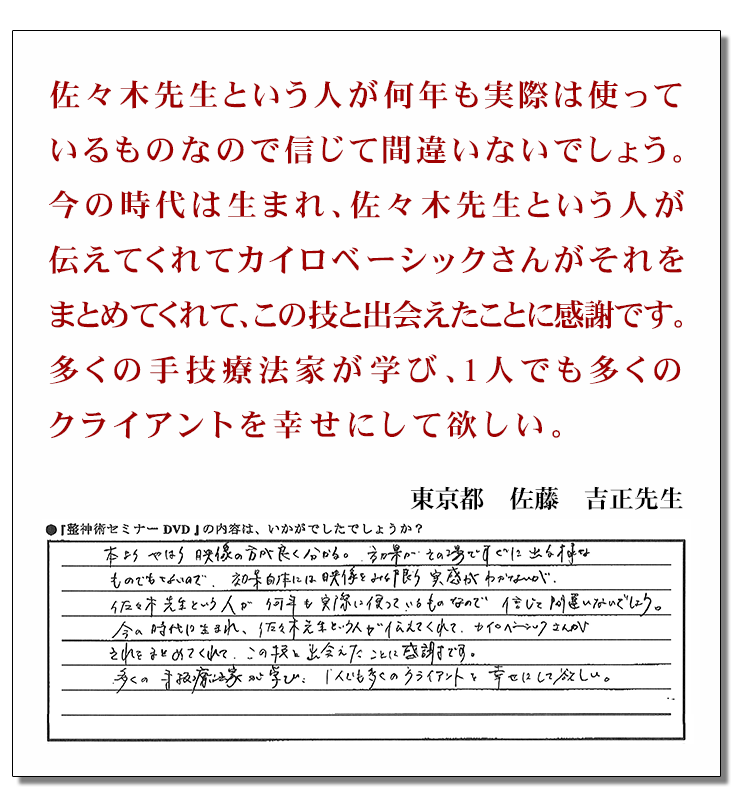 佐々木先生という人が何年も実際は使って
いるものなので信じて間違いないでしょう。
今の時代は生まれ、佐々木先生という人が
伝えてくれてカイロベーシックさんがそれを
まとめてくれて、この技と出会えたことに感謝です。
多くの手技療法家が学び、1人でも多くの
クライアントを幸せにして欲しい。
東京都 佐藤 吉正先生
●『整神術セミナーDVD』の内容は、いかがでしたでしょうか？
本よりやはり映像の方が良く分かる。効果がその場ですぐに出る様な
ものでもないので、効果自体には映像をみる限り実感がわかないが、
佐々木先生という人が何年も実際に使っているものなので信じて間違いないでしょう。
今の時代に生まれ、佐々木先生という人が伝えてくれて、カイロベーシックさんが
それをまとめてくれて、この技と出会えたことに感謝です。
多くの手技療法家が学び、1人でも多くのクライアントを幸せにして欲しい。